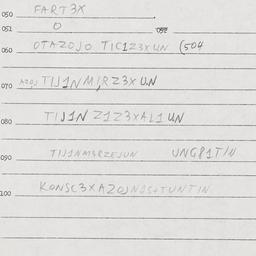 050 FART3X
051 O 052
060 OTAZOJO TIC1Z3XUN (504
070 AZOJ TIJ1NM1RZ3XUN
080 TIJ1N Z1Z3XAL1UN
090 TIJ1NM3RZEJUN UNGR1TIU
100 KONSC3XAZOJ